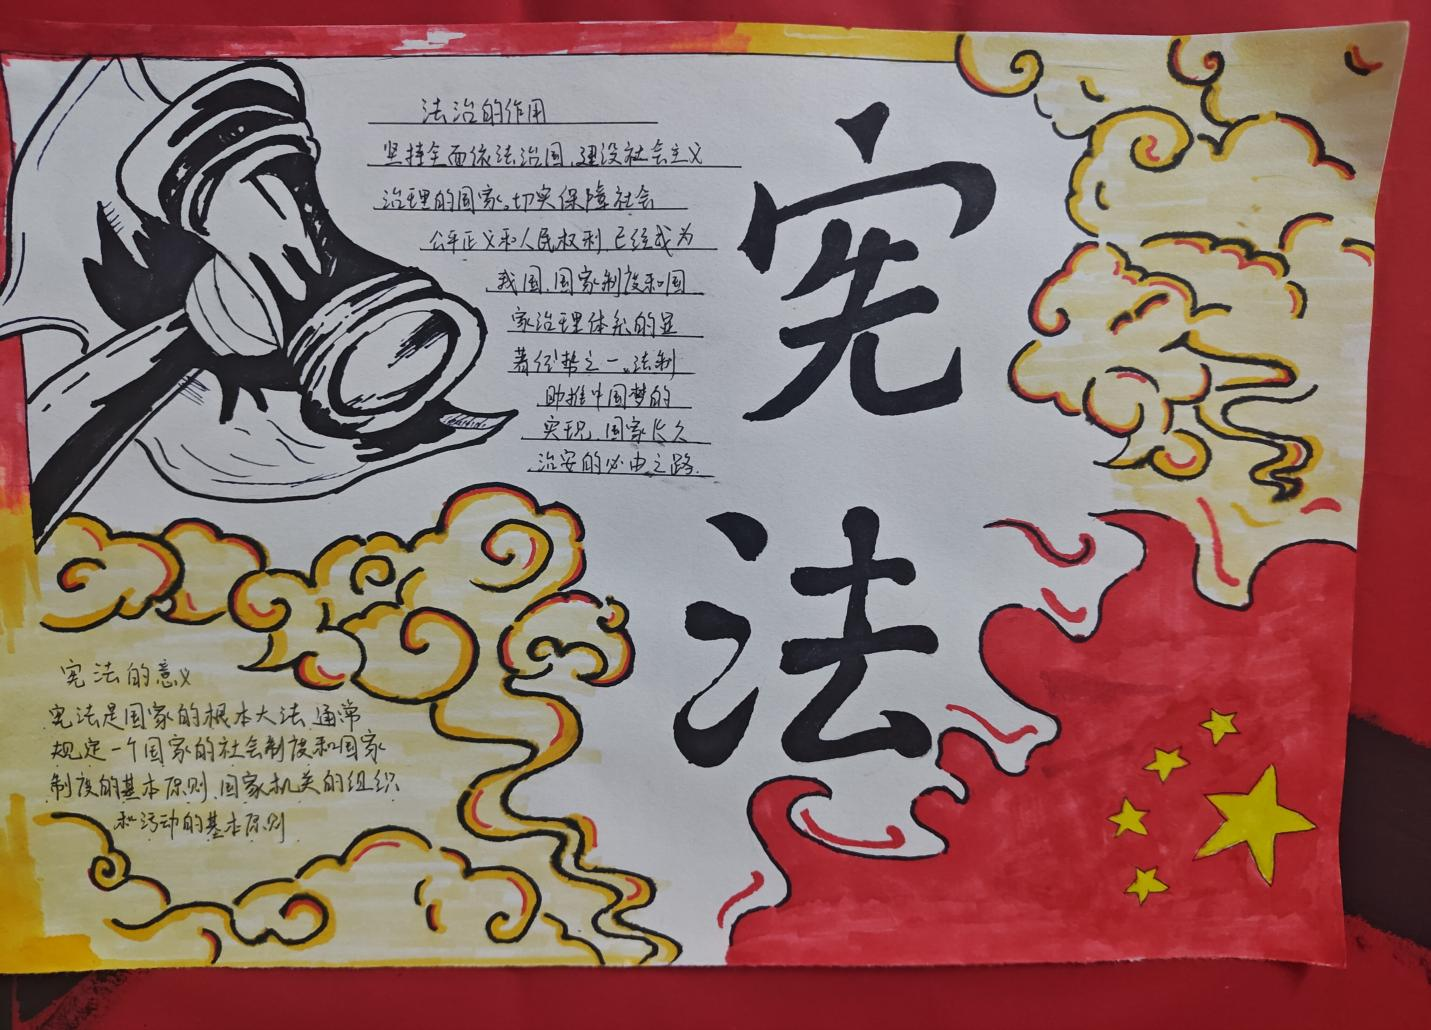 法治的作用
坚持全面依法治国,建设社会主义
治理的国家。切实保障社会
公平正义和人民权利,已经成为
我国,国家制度和国
家治理体系的显
著优势之一。法制
助推中国梦的
实现、国家长久
治安的必由之路.
宪
法
宪法的意义
宪法是国家的根本大法,通常
规定一个国家的社会制度和国家
制度的基本原则,国家机关的组织
和活动的基本原则